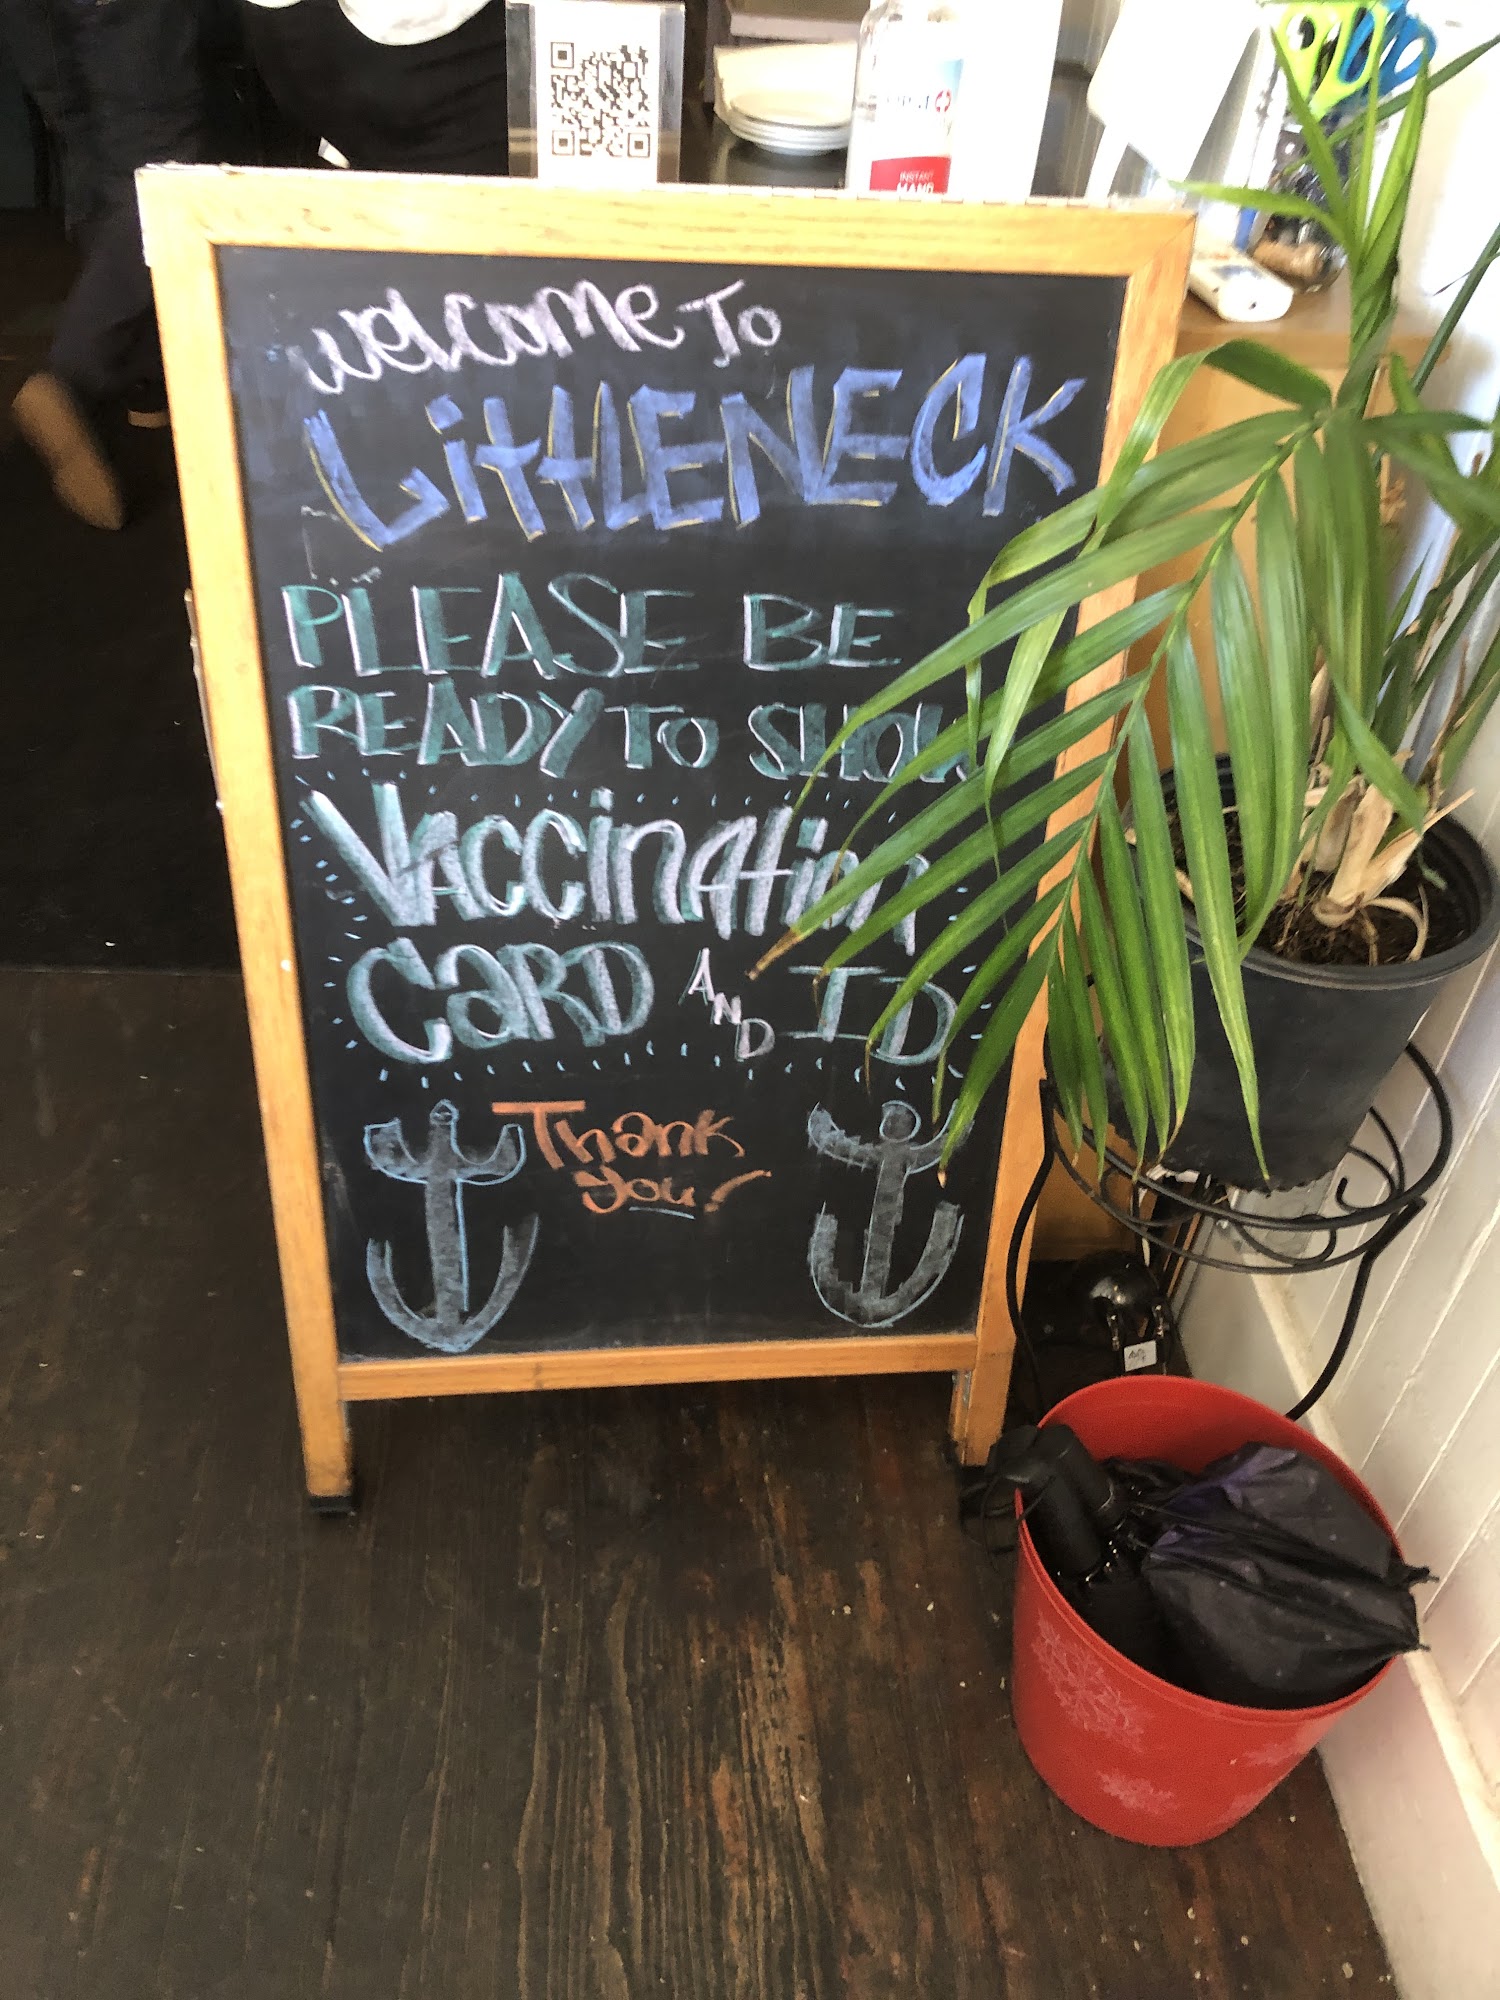 INSTANT
HAND
Welcome To
LittLENECK
PLEASE BE
READY TO SHOW
VACCinAtion
CaRD AND ID
Thank
you!